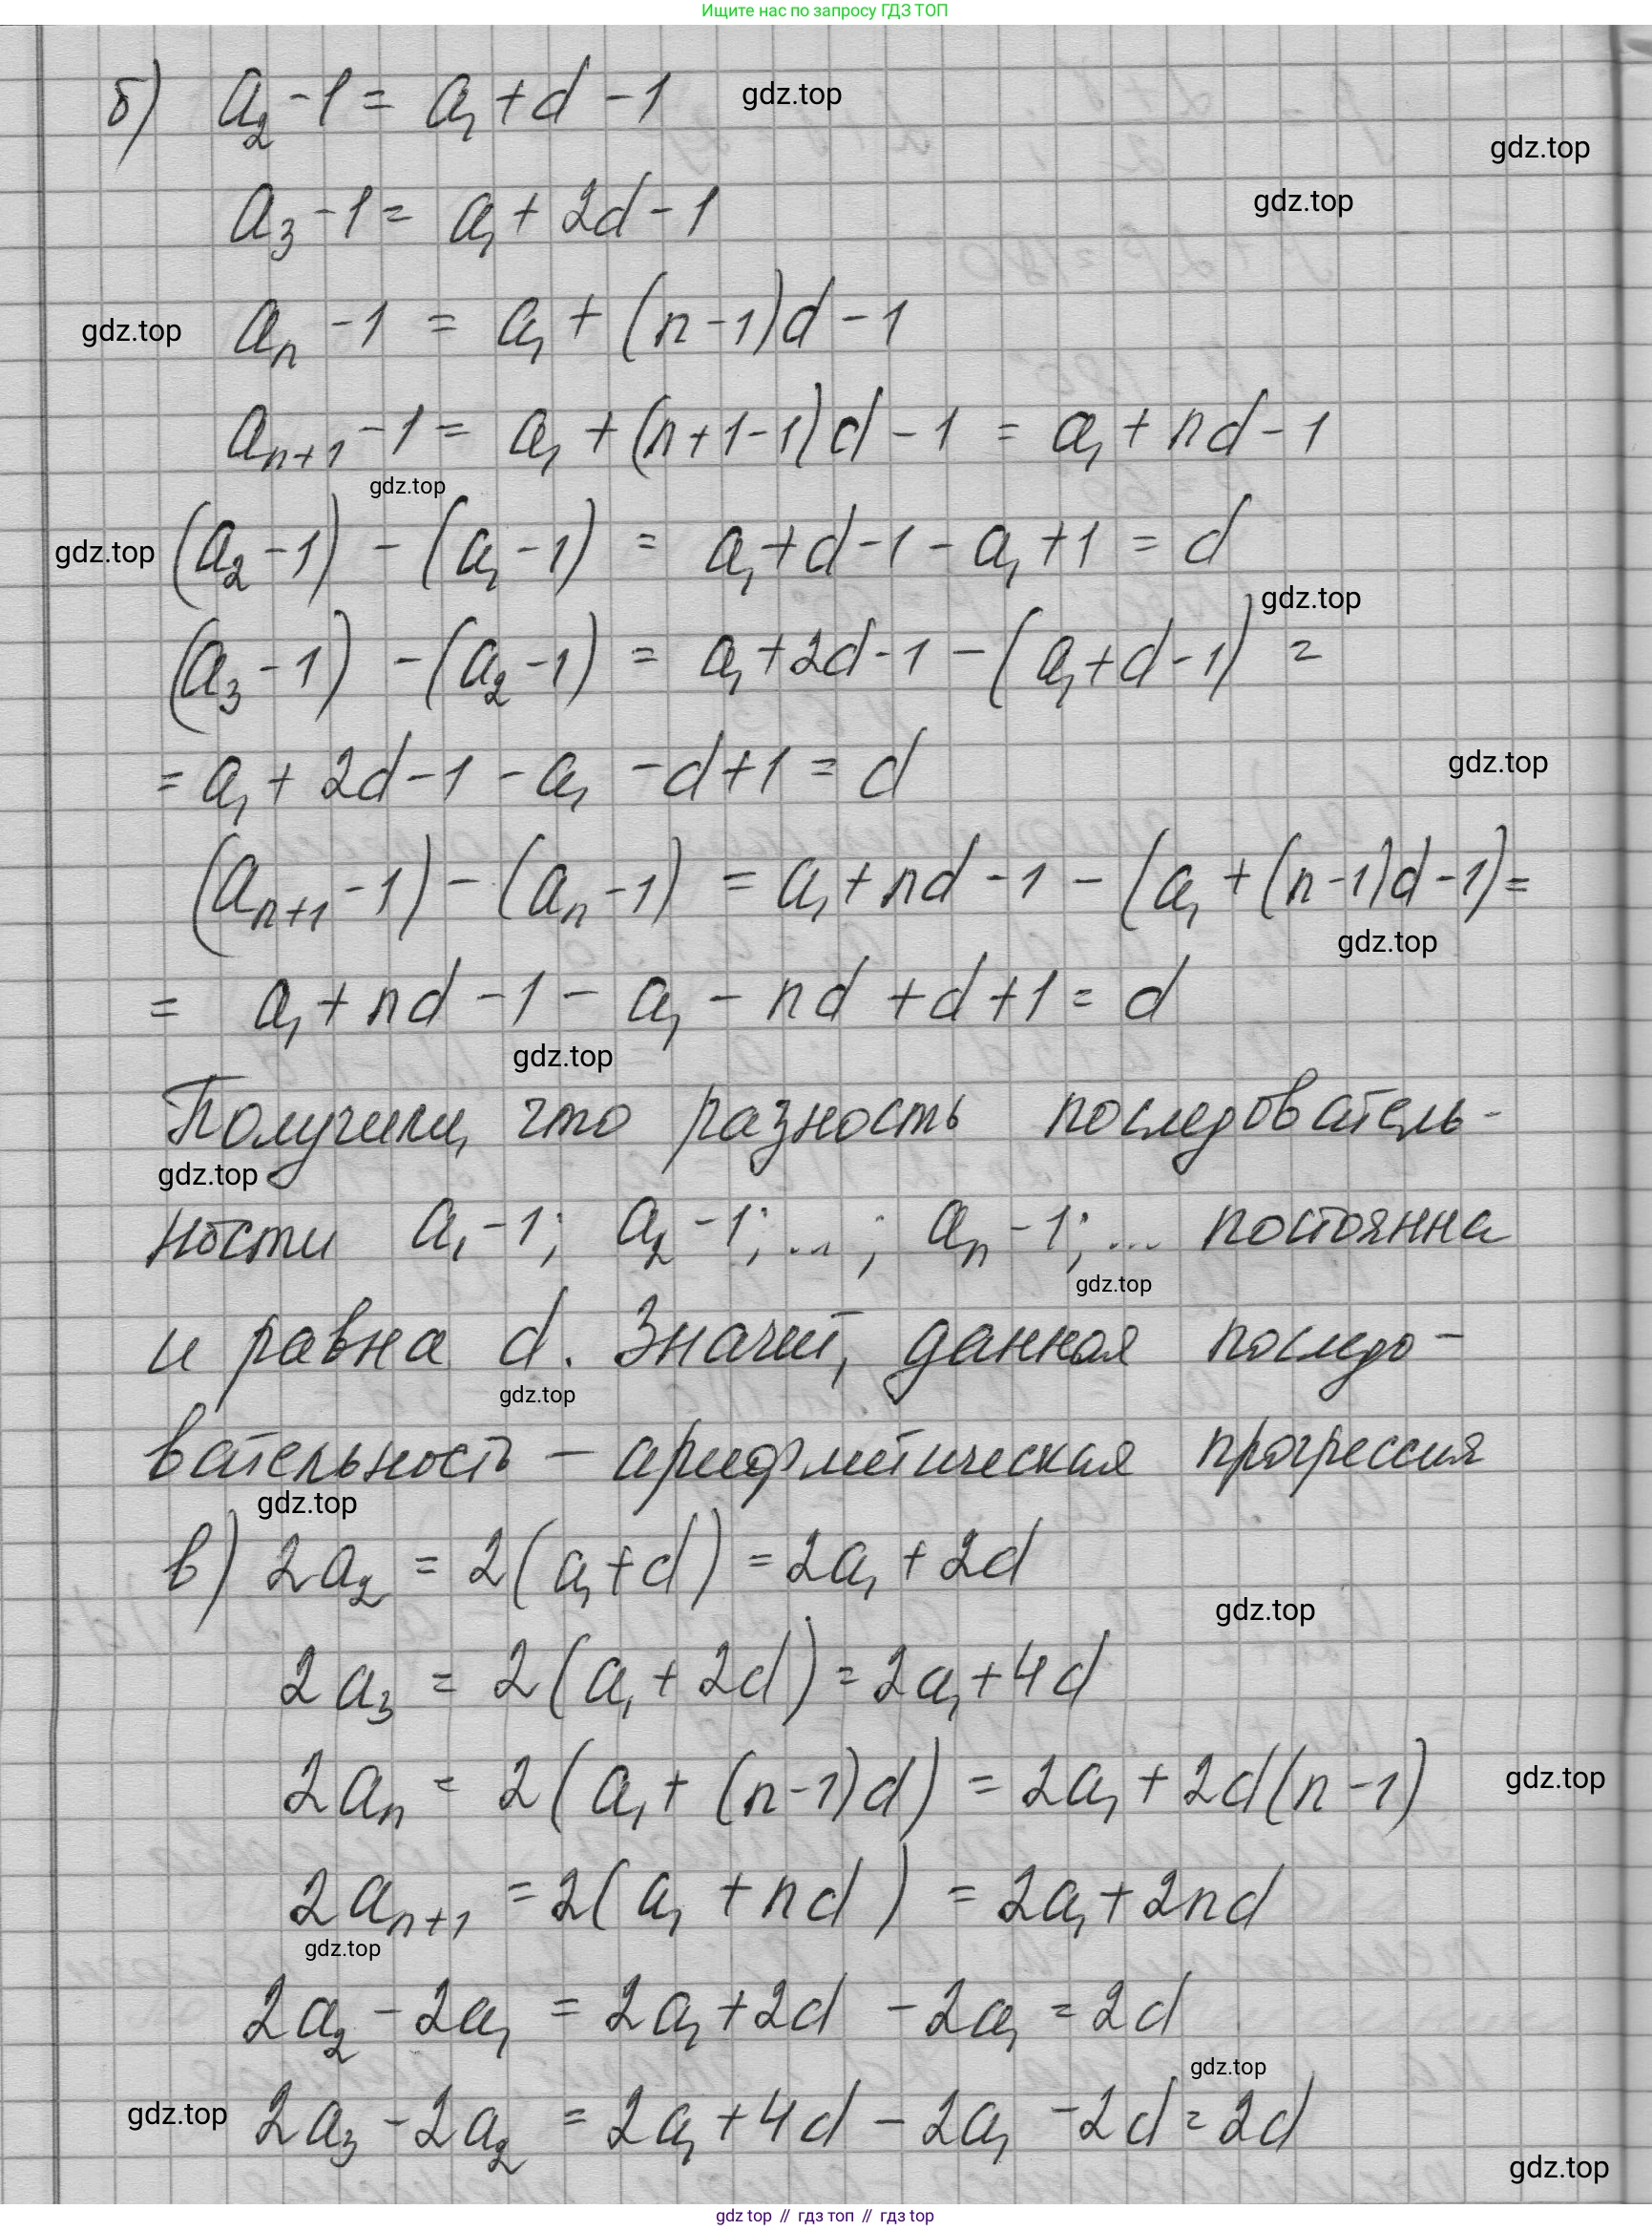 Ищите нас по запросу ГДЗ ТОП
б) a₂ - 1 = a₁ + d - 1 gdz.top
gdz.top
a₃ - 1 = a₁ + 2d - 1 gdz.top
gdz.top aₙ - 1 = a₁ + (n - 1)d - 1
aₙ₊₁ - 1 = a₁ + (n + 1 - 1)d - 1 = a₁ + nd - 1
gdz.top
gdz.top (a₂ - 1) - (a₁ - 1) = a₁ + d - 1 - a₁ + 1 = d
gdz.top
(a₃ - 1) - (a₂ - 1) = a₁ + 2d - 1 - (a₁ + d - 1) =
= a₁ + 2d - 1 - a₁ - d + 1 = d gdz.top
(aₙ₊₁ - 1) - (aₙ - 1) = a₁ + nd - 1 - (a₁ + (n - 1)d - 1) =
gdz.top
= a₁ + nd - 1 - a₁ - nd + d + 1 = d
gdz.top
Получили, что разность последователь-
gdz.top
ности a₁ - 1; a₂ - 1; ...; aₙ - 1; ... постоянна
gdz.top
и равна d. Значит, данная последо-
gdz.top
вательность - арифметическая прогрессия
gdz.top
в) 2a₂ = 2(a₁ + d) = 2a₁ + 2d
gdz.top
2a₃ = 2(a₁ + 2d) = 2a₁ + 4d
2aₙ = 2(a₁ + (n - 1)d) = 2a₁ + 2d(n - 1) gdz.top
2aₙ₊₁ = 2(a₁ + nd) = 2a₁ + 2nd
gdz.top
2a₂ - 2a₁ = 2a₁ + 2d - 2a₁ = 2d
gdz.top
gdz.top 2a₃ - 2a₂ = 2a₁ + 4d - 2a₁ - 2d = 2d
gdz.top
gdz top // гдз топ // гдз top